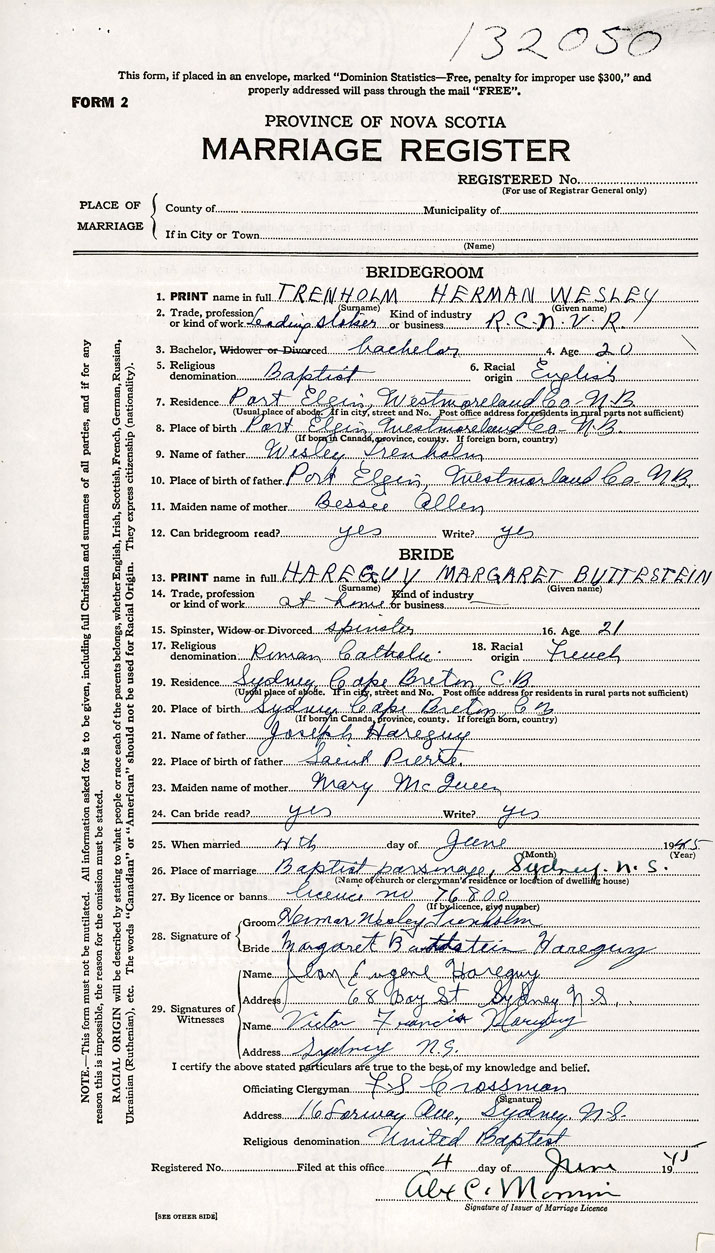 132050
This form, if placed in an envelope, marked "Dominion Statistics—Free, penalty for improper use $300," and
properly addressed will pass through the mail "FREE".
FORM 2
PROVINCE OF NOVA SCOTIA
MARRIAGE REGISTER
REGISTERED No.
(For use of Registrar General only)
PLACE OF MARRIAGE
County of Municipality of
If in City or Town
(Name)
BRIDEGROOM
1. PRINT name in full TRENHOLM HERMAN WESLEY
(Surname) (Given name)
2. Trade, profession or kind of work Leading stoker Kind of industry or business R.C.N.V.R.
3. Bachelor, Widower or Divorced bachelor 4. Age 20
5. Religious denomination Baptist 6. Racial origin English
7. Residence Port Elgin, Westmoreland Co- N.B
(Usual place of abode. If in city, street and No. Post office address for residents in rural parts not sufficient)
8. Place of birth Port Elgin, Westmoreland Co- N.B.
(If born in Canada, province, county. If foreign born, country)
9. Name of father Wesley Trenholm
10. Place of birth of father Port Elgin, Westmorland Co- NB.
11. Maiden name of mother Bessie Allen
12. Can bridegroom read? yes Write? yes
BRIDE
13. PRINT name in full HAREGUY MARGARET BUTTESTEIN
(Surname) (Given name)
14. Trade, profession or kind of work at home Kind of industry or business —
15. Spinster, Widow or Divorced spinster 16. Age 21
17. Religious denomination Roman Catholic 18. Racial origin French
19. Residence Sydney, Cape Breton, C.B
(Usual place of abode. If in city, street and No. Post office address for residents in rural parts not sufficient)
20. Place of birth Sydney Cape Breton, C B
(If born in Canada, province, county. If foreign born, country)
21. Name of father Joseph Hareguy
22. Place of birth of father Saint Pierre.
23. Maiden name of mother Mary McQueen
24. Can bride read? yes Write? yes
25. When married 4th day of June 1945
(Month) (Year)
26. Place of marriage Baptist parsonage, Sydney. N.S.
(Name of church or clergyman's residence or location of dwelling house)
27. By licence or banns licence no 76800
(If by licence, give number)
28. Signature of
Groom Herman Wesley Trenholm
Bride Margaret Hareguy
29. Signatures of Witnesses
Name Jean Eugene Hareguy
Address 68 Bay St Sydney N.S..
Name Victor Francis Hareguy
Address Sydney N.S.
I certify the above stated particulars are true to the best of my knowledge and belief.
Officiating Clergyman F S Crossman
(Signature)
Address 16 Ave., Sydney. N.S.
Religious denomination United Baptist
Registered No. Filed at this office 4 day of June 1945
Alex C.
Signature of Issuer of Marriage Licence
[SEE OTHER SIDE]
NOTE.—This form must not be mutilated. All information asked for is to be given, including full Christian and surnames of all parties, and if for any
reason this is impossible, the reason for the omission must be stated.
RACIAL ORIGIN will be described by stating to what people or race each of the parents belongs, whether English, Irish, Scottish, French, German, Russian,
Ukrainian (Ruthenian), etc. The words "Canadian" or "American" should not be used for Racial Origin. They express citizenship (nationality).